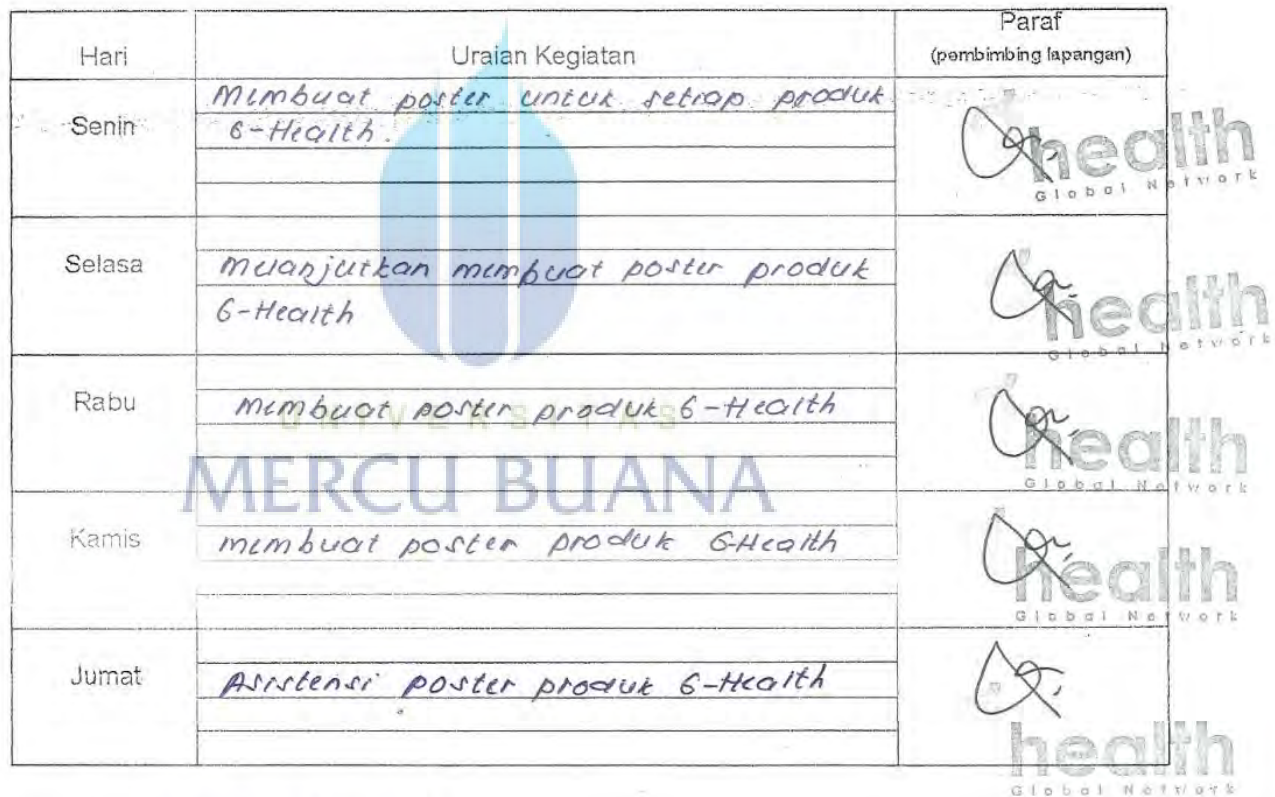 Hari Uraian Kegiatan Paraf
(pembimbing lapangan)
Senin
Membuat poster untuk setiap produk
G-Health.
health
Global Network
Selasa
Melanjutkan membuat poster produk
G-Health
health
Global Network
Rabu
membuat poster produk G-Health
health
Global Network
UNIVERSITAS
MERCU BUANA
Kamis
membuat poster produk G-Health
health
Global Network
Jumat
Asistensi poster produk G-Health
health
Global Network